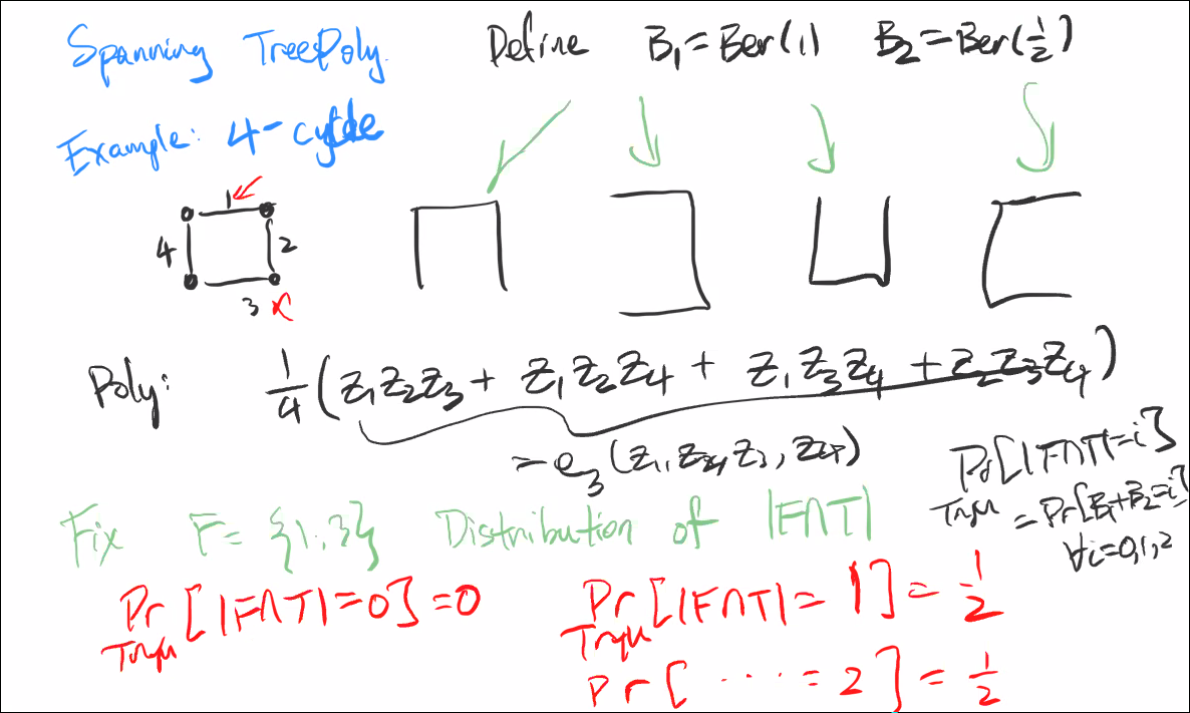 Spanning TreePoly. Define B₁=Ber(1) B₂=Ber(½)
Example: 4-cycle
1
4 2
3 x
Poly: 1/4 (z₁z₂z₃ + z₁z₂z₄ + z₁z₃z₄ + z₂z₃z₄)
= e₃ (z₁, z₂, z₃, z₄)
Pr[|F∩T|=i]
T~μ = Pr[B₁+B₂=i]
∀i=0,1,2
Fix F= {1,3} Distribution of |F∩T|
Pr[|F∩T|=0]=0 Pr[|F∩T|= 1]= 1/2
T~μ T~μ
Pr[ ....=2]= 1/2